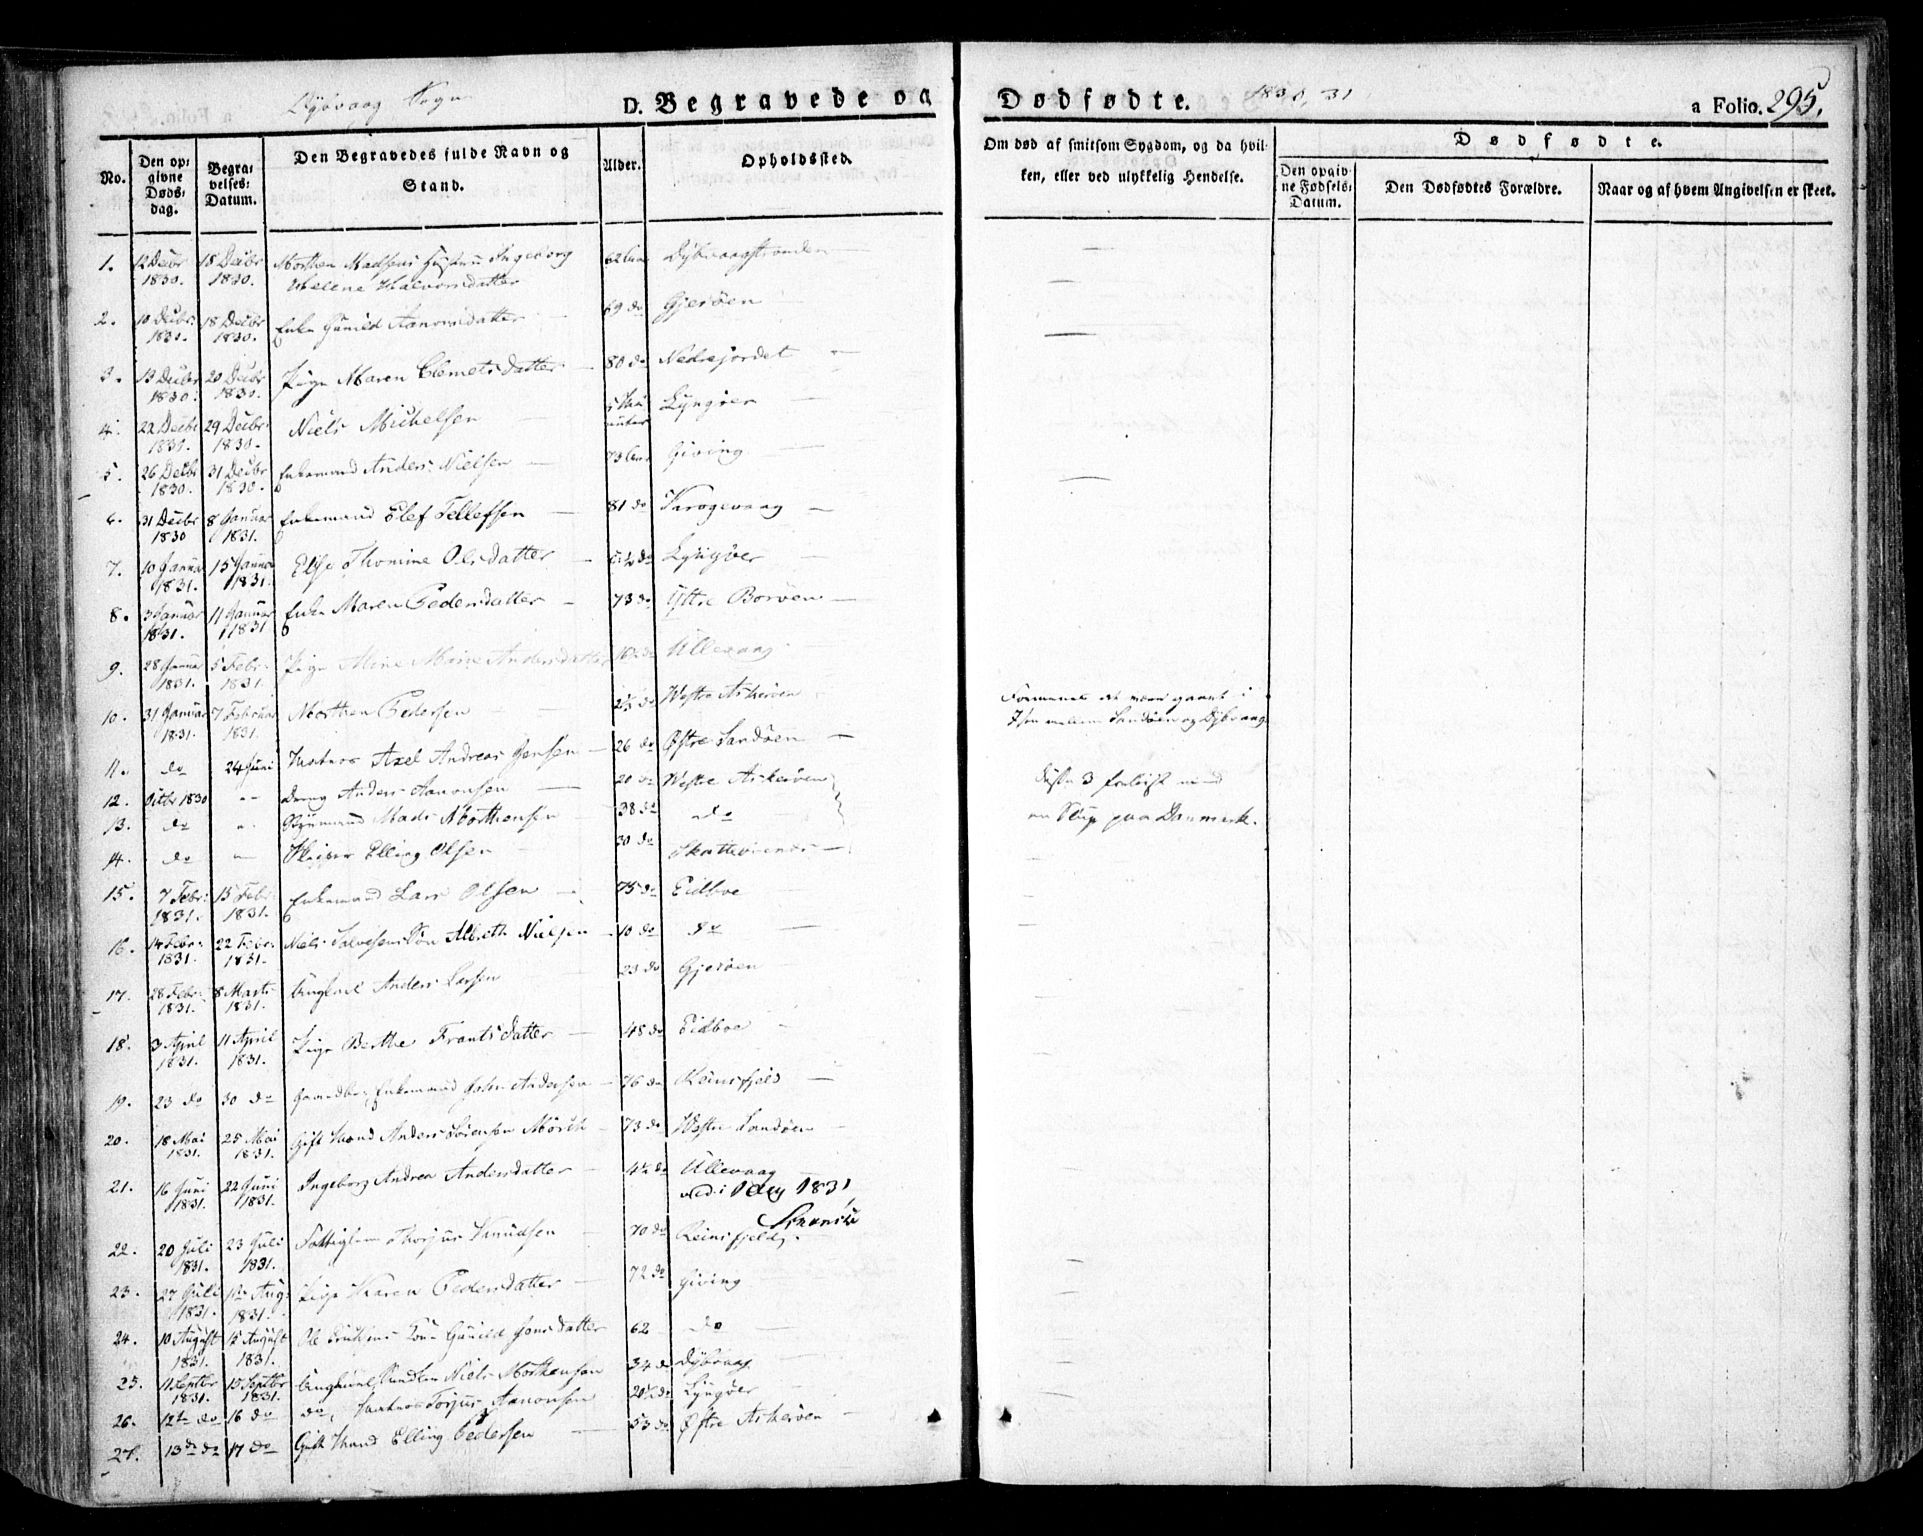 Dybvaag Sogn
D. Begravede og
Dødfødte.
1830, 31
a Folio. 295.
No.
Den opgivne Døds-dag.
Begravelses-Datum.
Den Begravedes fulde Navn og Stand.
Alder.
Opholdssted.
Om død af smitsom Sygdom, og da hvilken, eller ved ulykkelig Hendelse.
Dødfødte.
Den opgivne Fødsels-Datum.
Den Dødfødtes Forældre.
Naar og af hvem Angivelsen er skeet.
1. 12 Decbr 1830. 18 Decbr 1830. Morthen Madsens Hustru Ingeborg Helene Halvorsdatter 62 Dybvaagstranden
2. 10 Decbr 1830. 18 Decbr 1830. Enke Gunild Aanonsdatter 69 do Gjerøen
3. 13 Decbr 1830. 20 Decbr 1830. Pige Maren Clemetsdatter 80 do Nedrejordet
4. 22 Decbr 1830. 29 Decbr 1830. Niels Michelsen Lyngøer
5. 26 Decbr 1830. 31 Decbr 1830. Enkemand Anders Nielsen 73 Giving
6. 31 Decbr 1830 8 Januar 1831. Enkemand Elef Tellefsen 81 do Krogevaag
7. 10 Januar 1831. 15 Januar 1831. Else Thomine Olsdatter do Lyngøer
8. 3 Januar 1831. 11 Januar 1831 Enke Maren Pedersdatter 73 do Yttre Borøen
9. 28 Januar 1831. 5 Febr. 1831. Pige Marie Andersdatter Ullevaag
10. 31 Januar 1831. 7 Februar 1831. Morthen Pedersen do Westre Askerøen
Formenes at være gaaet i Isen mellem Sandøen og Dybvaag
11. do 24 Juni Matros Axel Andreas Jensen 26 do Østre Sandøen
12. Octbr 1830 " Dreng Anders Aanonsen 20 do Westre Askerøen
Disse 3 forliist med
13. do " Mads Morthensen 38 do do
en Slup paa Danmark.
14. do " Skipper Elling Olsen 30 do
15. 7 Febr. 1831. 15 Febr. 1831. Enkemand Lars Olsen 75 do Eidboe
16. 14 Febr. 1831. 22 Febr. 1831. Niels Salvesens Søn Albreth Nielsen 10 do do
17. 28 Febr. 1831. 8 Marts 1831. Ungkarl Anders Larsen 23 do Gjerøen
18. 3 April 1831. 11 April 1831. Pige Berthe Frantsdatter 48 do Eidboe
19. 23 do 30 do Enkemand John Andersen 76 do Reinsfjeld
20. 18 Mai 1831. 25 Mai 1831. Gift Mand Anders Sørensen Mörch 73 do Westre Sandøen
21. 16 Juni 1831. 22 Juni 1831. Ingeborg Andrea Andersdatter 4½ do Ullevaag
1831
22. 20 Juli 1831. 23 Juli 1831. Fattiglem Thorjus Knudsen 70 do Reinsfjeld
23. 27 Juli 1831. Aug. 1831. Pige Karen Pedersdatter 72 do Giving
24. 10 August 1831. August 1831. Ole Gunild Jonsdatter 62 do
25. 11 Septbr 1831. 15 Septbr 1831. Ungkarl Niels Morthensen 34 do Dybvaag
26. 12te do 16 do do, Matros Torjus Aanonsen 20½ do Lyngøer
27. 13de do 17 do Gift Mand Elling Pedersen 53 do Østre Askerøen